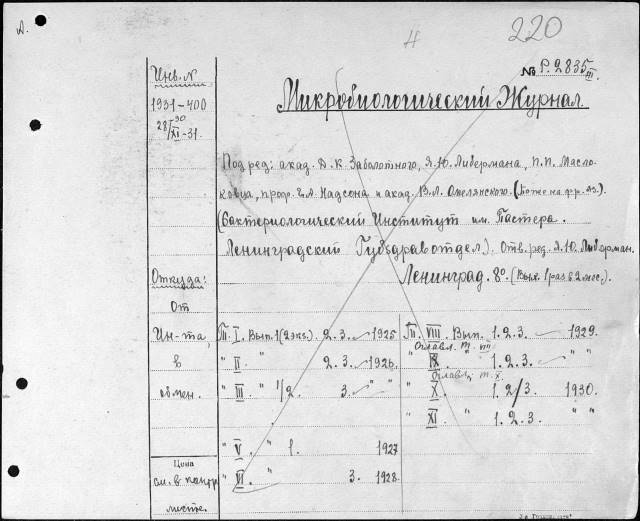 А.
220
Н
№ Р. 2835/III.
Инв. №
1931-400
28/XI-31.
30
Микробиологический Журнал.
Под ред: акад. Д. К. Заболотного, Я.Ю. Либермана, П.П. Масло-
ковца, проф. Г.А. Надсона и акад. В.Л. Омелянского. (Тоже на фр. яз.).
(Бактериологический Институт им. Пастера.
Ленинградский Губздравотдел). Отв. ред. Я.Ю. Либерман.
Ленинград. 8°. (Вых. 1 раз в 2 мес.).
Откуда:
От
Ин-та
в
обмен.
Цена
см. в. кантр
листе.
Т. I. Вып. 1 (2 экз.). 2. 3. 1925
" II " 2. 3. 1926.
" III " 1/2. 3. " "
" V " 1. 1927
" VI " 3. 1928.
Т. VIII. Вып. 1. 2. 3. 1929.
Оглавл. т. VIII
" IX " 1. 2. 3. " "
Оглавл. т. X.
" X " 1. 2/3. 1930.
" XI " 1. 2. 3. " "